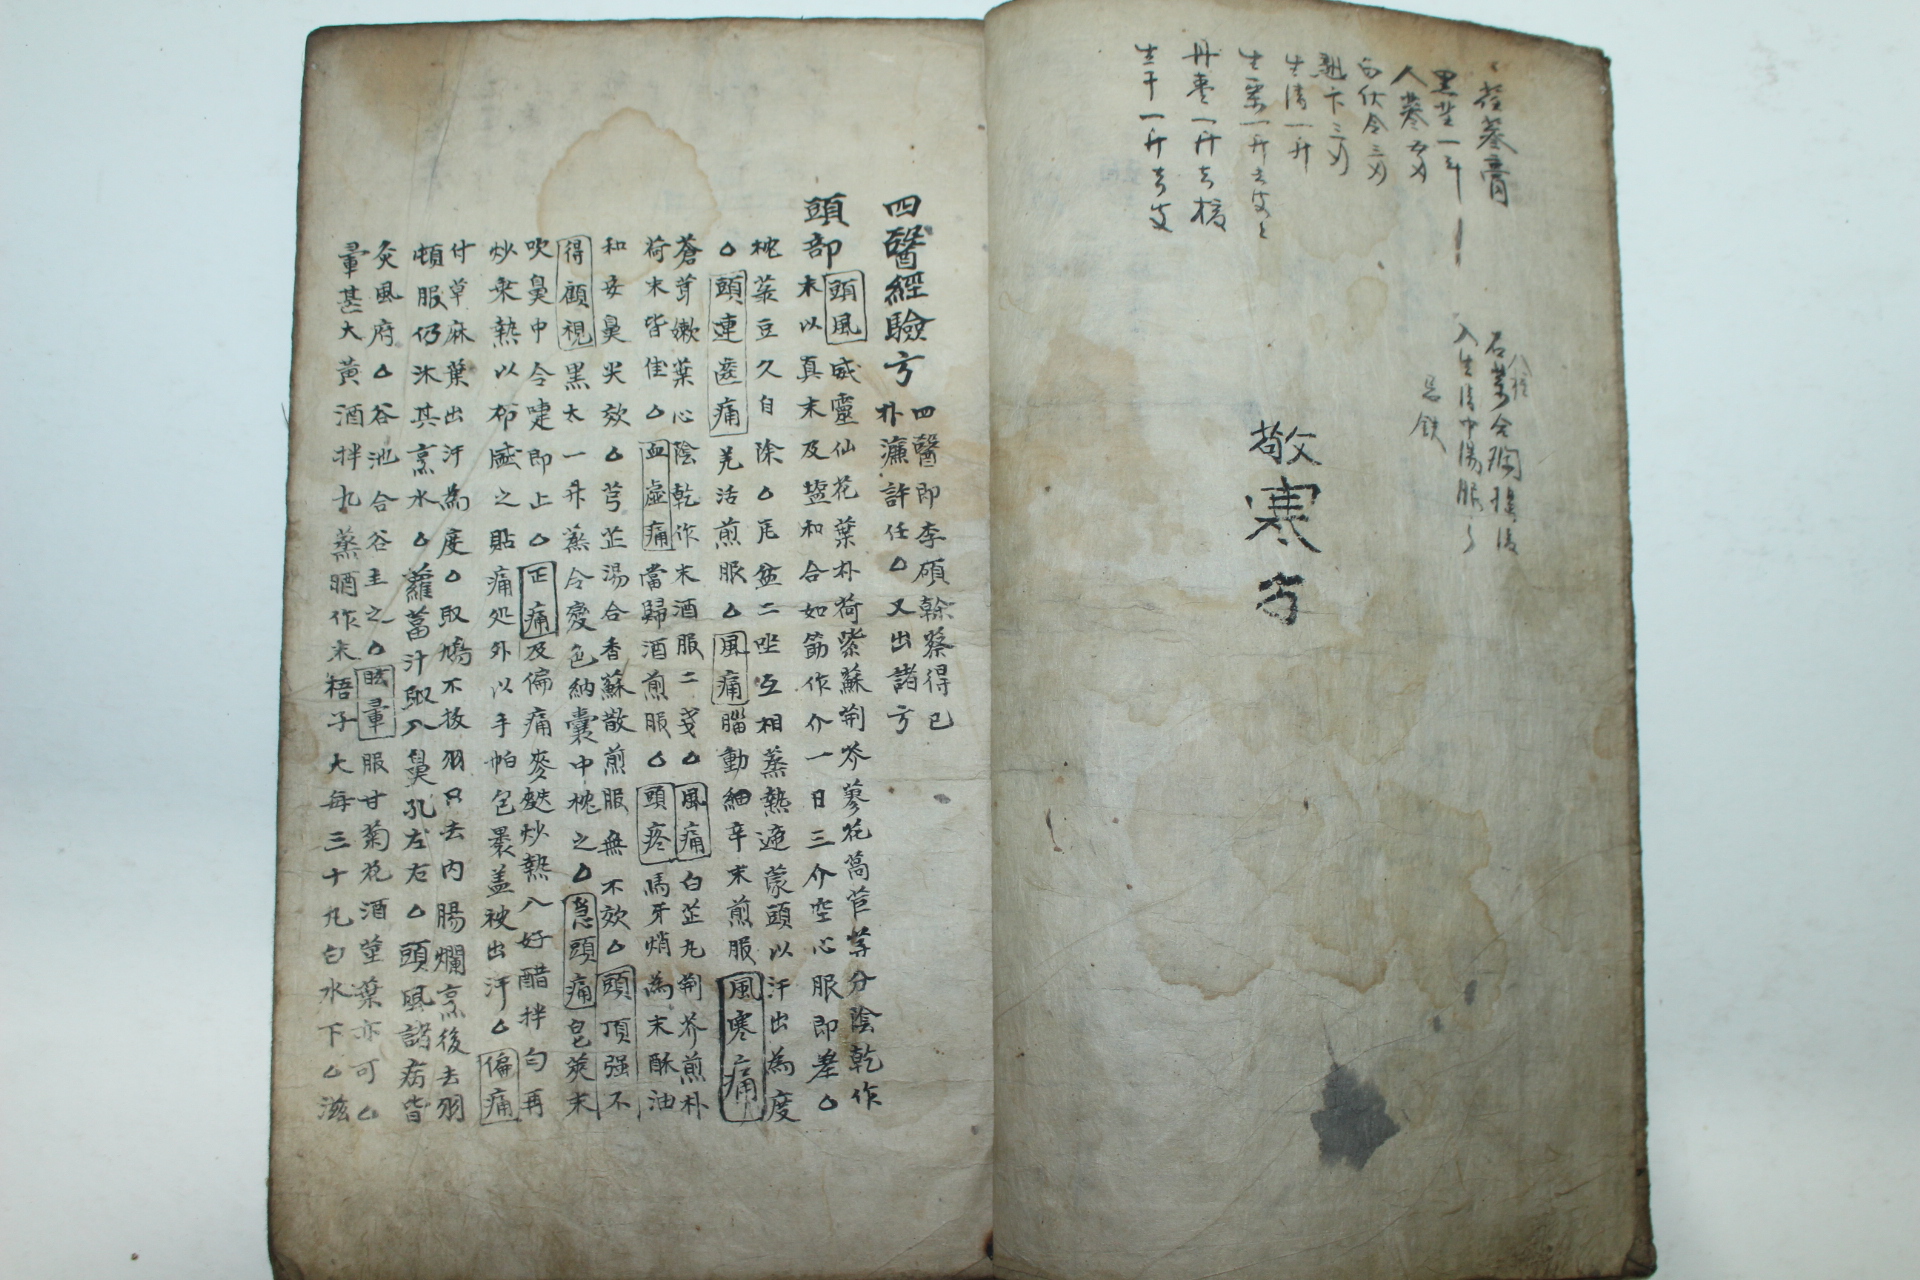 人蔘五刄
白伏令三刄
生清一升
丹棗一升去核
敬寒方
四醫經驗方
四醫即李碩幹蔡得己
朴濂許任△又出諸方
頭部
頭風威靈仙花葉朴荷紫蘇荊芥蓼花萵苣等分陰乾作
末以真末及塩和合如筯作介一日三介空心服即差△
枕菉豆久自除△瓦盆二坐互相蒸熱遞蒙頭以汗出為度
△頭連齒痛羌活煎服△風痛腦動細辛末煎服風寒痛
蒼茸嫩葉心陰乾作末酒服二戔△風痛白芷丸荊芥煎朴
荷末皆佳△血虛痛當歸酒煎服△頭疼馬牙焇為末酥油
和安鼻尖效△芎芷湯合香蘇散煎服無不效△頭項强不
得顧視黑太一升蒸令變色納囊中枕之△急頭痛皂莢末
吹鼻中令嚏即止△正痛及偏痛麥麩炒熱入好醋拌勻再
炒乘熱以布盛之貼痛処外以手帕包褁盖被出汗△偏痛
付草麻葉出汗為度△取鳩不拔羽只去內腸爛烹後去羽
頓服仍沐其烹水△蘿葍汁取入鼻孔左右△頭風諸病皆
灸風府△谷池合谷主之△眩暈服甘菊花酒莖葉亦可△
暈甚大黃酒拌九蒸晒作末梧子大每三十丸白水下△滋